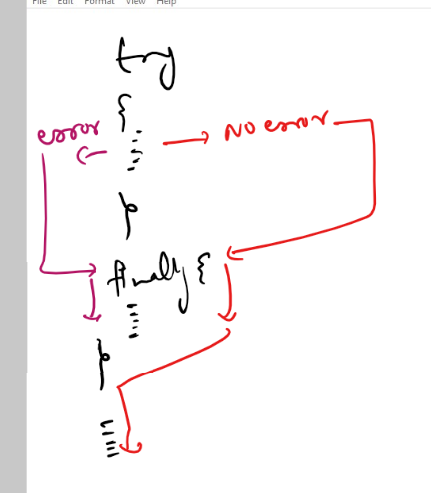 File Edit Format View Help
try
{
error No error
}
finally {
}